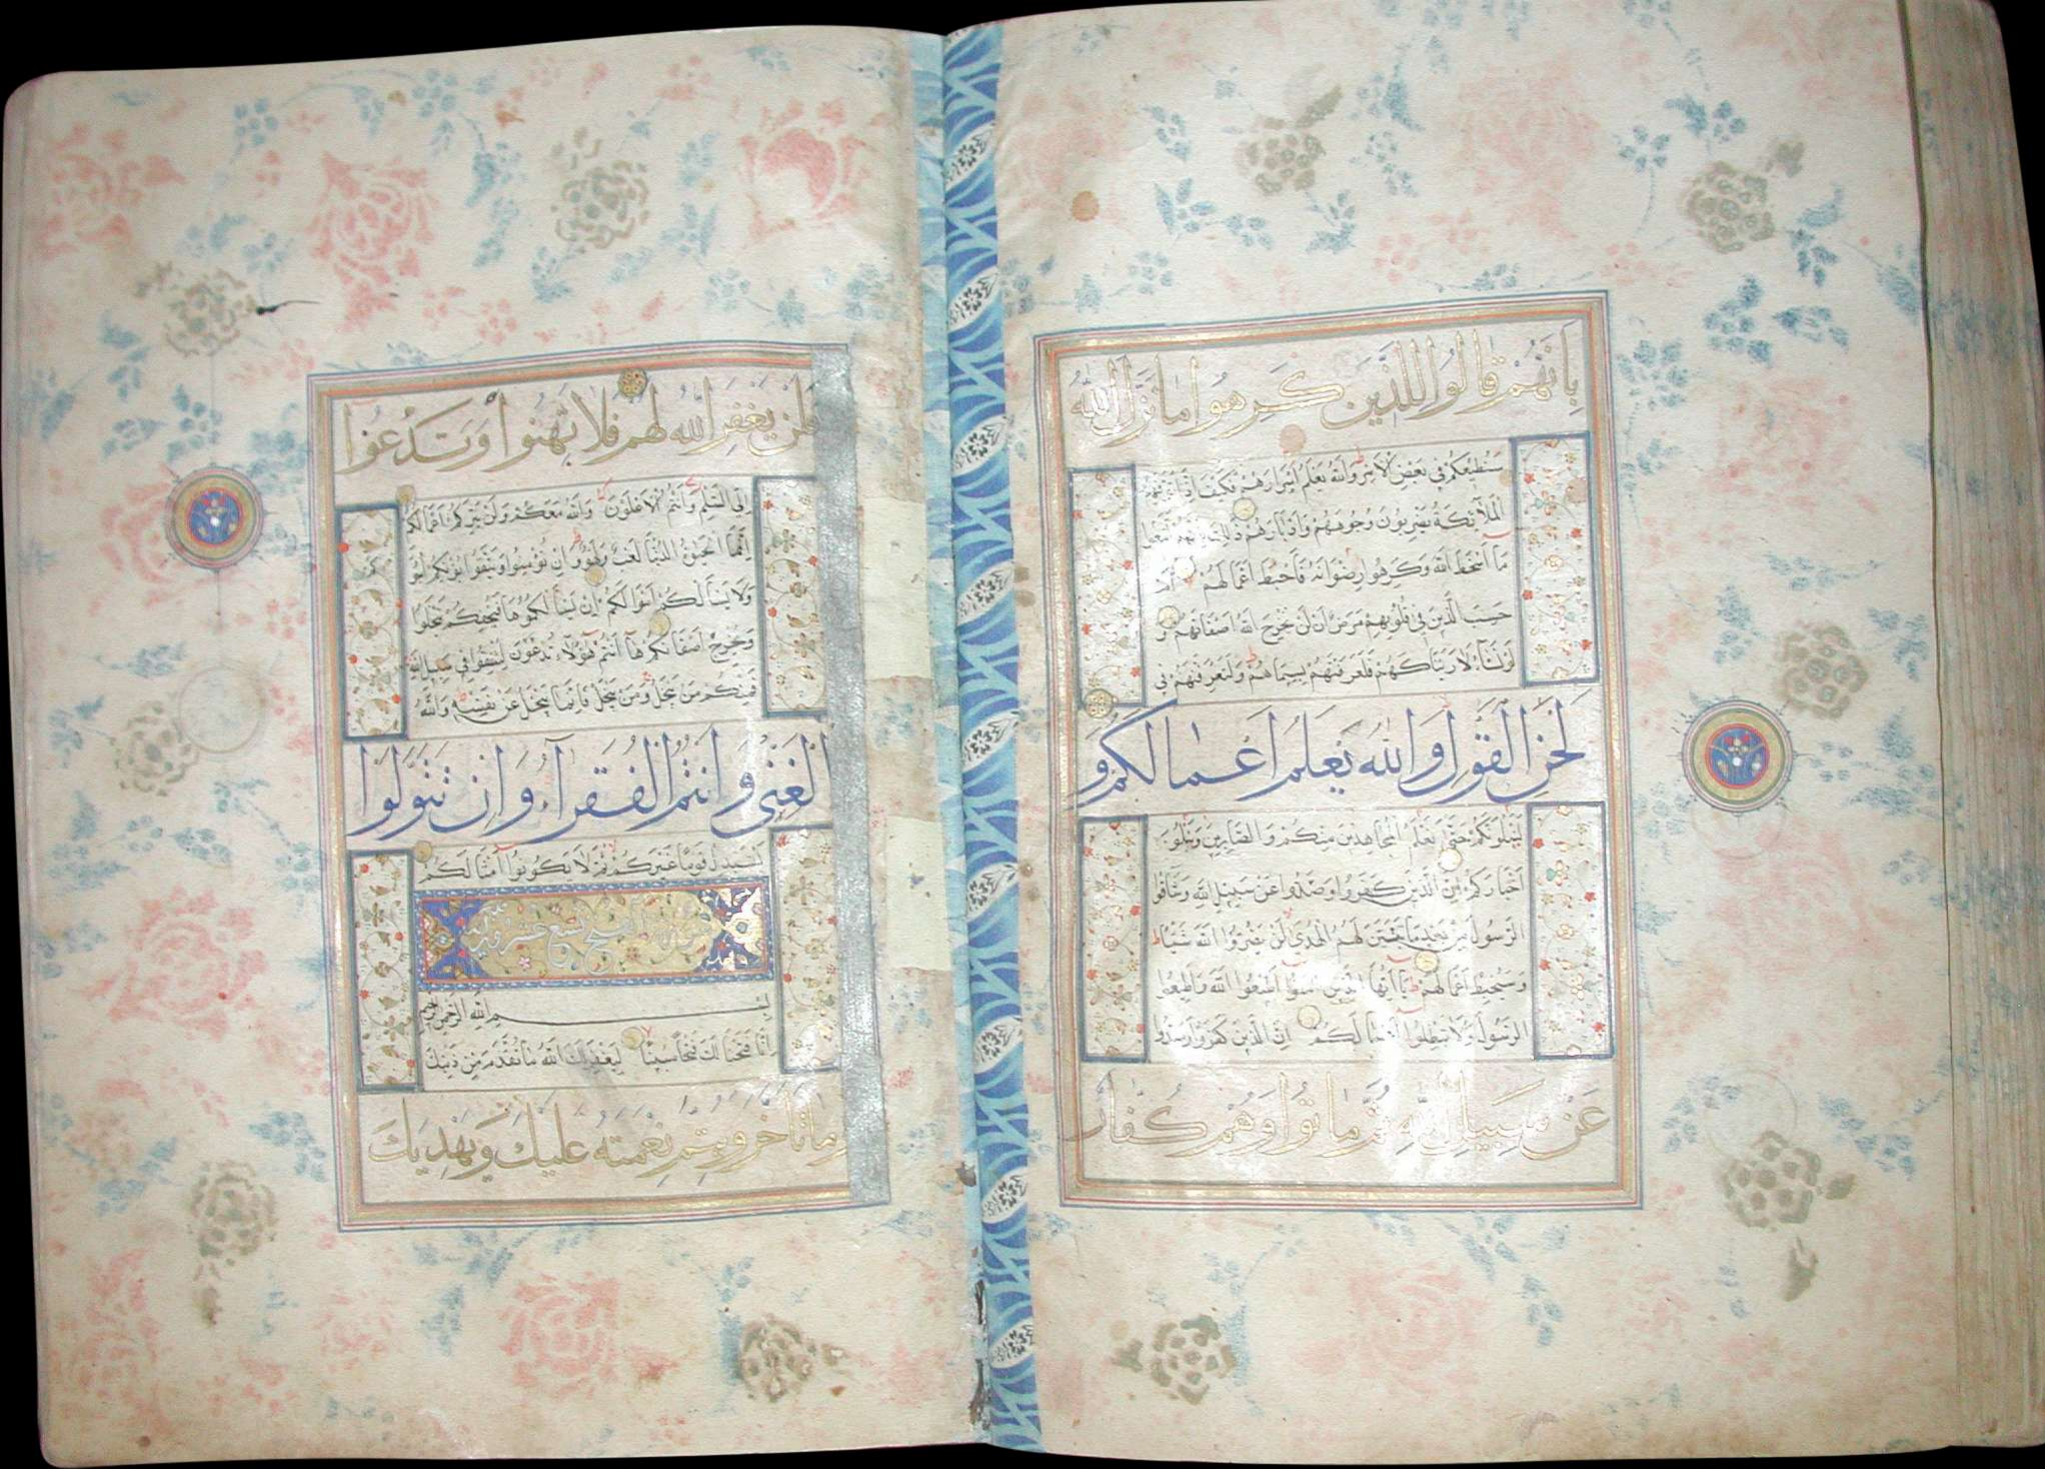 بِأَنَّهُمْ قَالُوا لِلَّذِينَ كَرِهُوا مَا نَزَّلَ اللَّهُ
سَنُطِيعُكُمْ فِي بَعْضِ الْأَمْرِ وَاللَّهُ يَعْلَمُ أَسْرَارَهُمْ فَكَيْفَ إِذَا تَوَفَّتْهُمُ
الْمَلَائِكَةُ يَضْرِبُونَ وُجُوهَهُمْ وَأَدْبَارَهُمْ ذَلِكَ بِأَنَّهُمُ اتَّبَعُوا
مَا أَسْخَطَ اللَّهَ وَكَرِهُوا رِضْوَانَهُ فَأَحْبَطَ أَعْمَالَهُمْ أَمْ
حَسِبَ الَّذِينَ فِي قُلُوبِهِمْ مَرَضٌ أَنْ لَنْ يُخْرِجَ اللَّهُ أَضْغَانَهُمْ وَ
لَوْ نَشَاءُ لَأَرَيْنَاكَهُمْ فَلَعَرَفْتَهُمْ بِسِيمَاهُمْ وَلَتَعْرِفَنَّهُمْ فِي
لَحْنِ الْقَوْلِ وَاللَّهُ يَعْلَمُ أَعْمَالَكُمْ وَ
لَنَبْلُوَنَّكُمْ حَتَّى نَعْلَمَ الْمُجَاهِدِينَ مِنْكُمْ وَالصَّابِرِينَ وَنَبْلُوَ
أَخْبَارَكُمْ إِنَّ الَّذِينَ كَفَرُوا وَصَدُّوا عَنْ سَبِيلِ اللَّهِ وَشَاقُّوا
الرَّسُولَ مِنْ بَعْدِ مَا تَبَيَّنَ لَهُمُ الْهُدَى لَنْ يَضُرُّوا اللَّهَ شَيْئًا
وَسَيُحْبِطُ أَعْمَالَهُمْ يَا أَيُّهَا الَّذِينَ آمَنُوا أَطِيعُوا اللَّهَ وَأَطِيعُوا
الرَّسُولَ وَلَا تُبْطِلُوا أَعْمَالَكُمْ إِنَّ الَّذِينَ كَفَرُوا وَصَدُّوا
عَنْ سَبِيلِ اللَّهِ ثُمَّ مَاتُوا وَهُمْ كُفَّارٌ
فَلَنْ يَغْفِرَ اللَّهُ لَهُمْ فَلَا تَهِنُوا وَتَدْعُوا
إِلَى السَّلْمِ وَأَنْتُمُ الْأَعْلَوْنَ وَاللَّهُ مَعَكُمْ وَلَنْ يَتِرَكُمْ أَعْمَالَكُمْ
إِنَّمَا الْحَيَوةُ الدُّنْيَا لَعِبٌ وَلَهْوٌ وَإِنْ تُؤْمِنُوا وَتَتَّقُوا يُؤْتِكُمْ أُجُورَكُمْ
وَلَا يَسْأَلْكُمْ أَمْوَالَكُمْ إِنْ يَسْأَلْكُمُوهَا فَيُحْفِكُمْ تَبْخَلُوا
وَيُخْرِجْ أَضْغَانَكُمْ هَا أَنْتُمْ هَؤُلَاءِ تُدْعَوْنَ لِتُنْفِقُوا فِي سَبِيلِ اللَّهِ
فَمِنْكُمْ مَنْ يَبْخَلُ وَمَنْ يَبْخَلْ فَإِنَّمَا يَبْخَلُ عَنْ نَفْسِهِ وَاللَّهُ
الْغَنِيُّ وَأَنْتُمُ الْفُقَرَاءُ وَإِنْ تَتَوَلَّوْا
يَسْتَبْدِلْ قَوْمًا غَيْرَكُمْ ثُمَّ لَا يَكُونُوا أَمْثَالَكُمْ
سورة الفتح تسع عشرون آية
بِسْمِ اللَّهِ الرَّحْمَنِ الرَّحِيمِ
إِنَّا فَتَحْنَا لَكَ فَتْحًا مُبِينًا لِيَغْفِرَ لَكَ اللَّهُ مَا تَقَدَّمَ مِنْ ذَنْبِكَ
وَمَا تَأَخَّرَ وَيُتِمَّ نِعْمَتَهُ عَلَيْكَ وَيَهْدِيَكَ